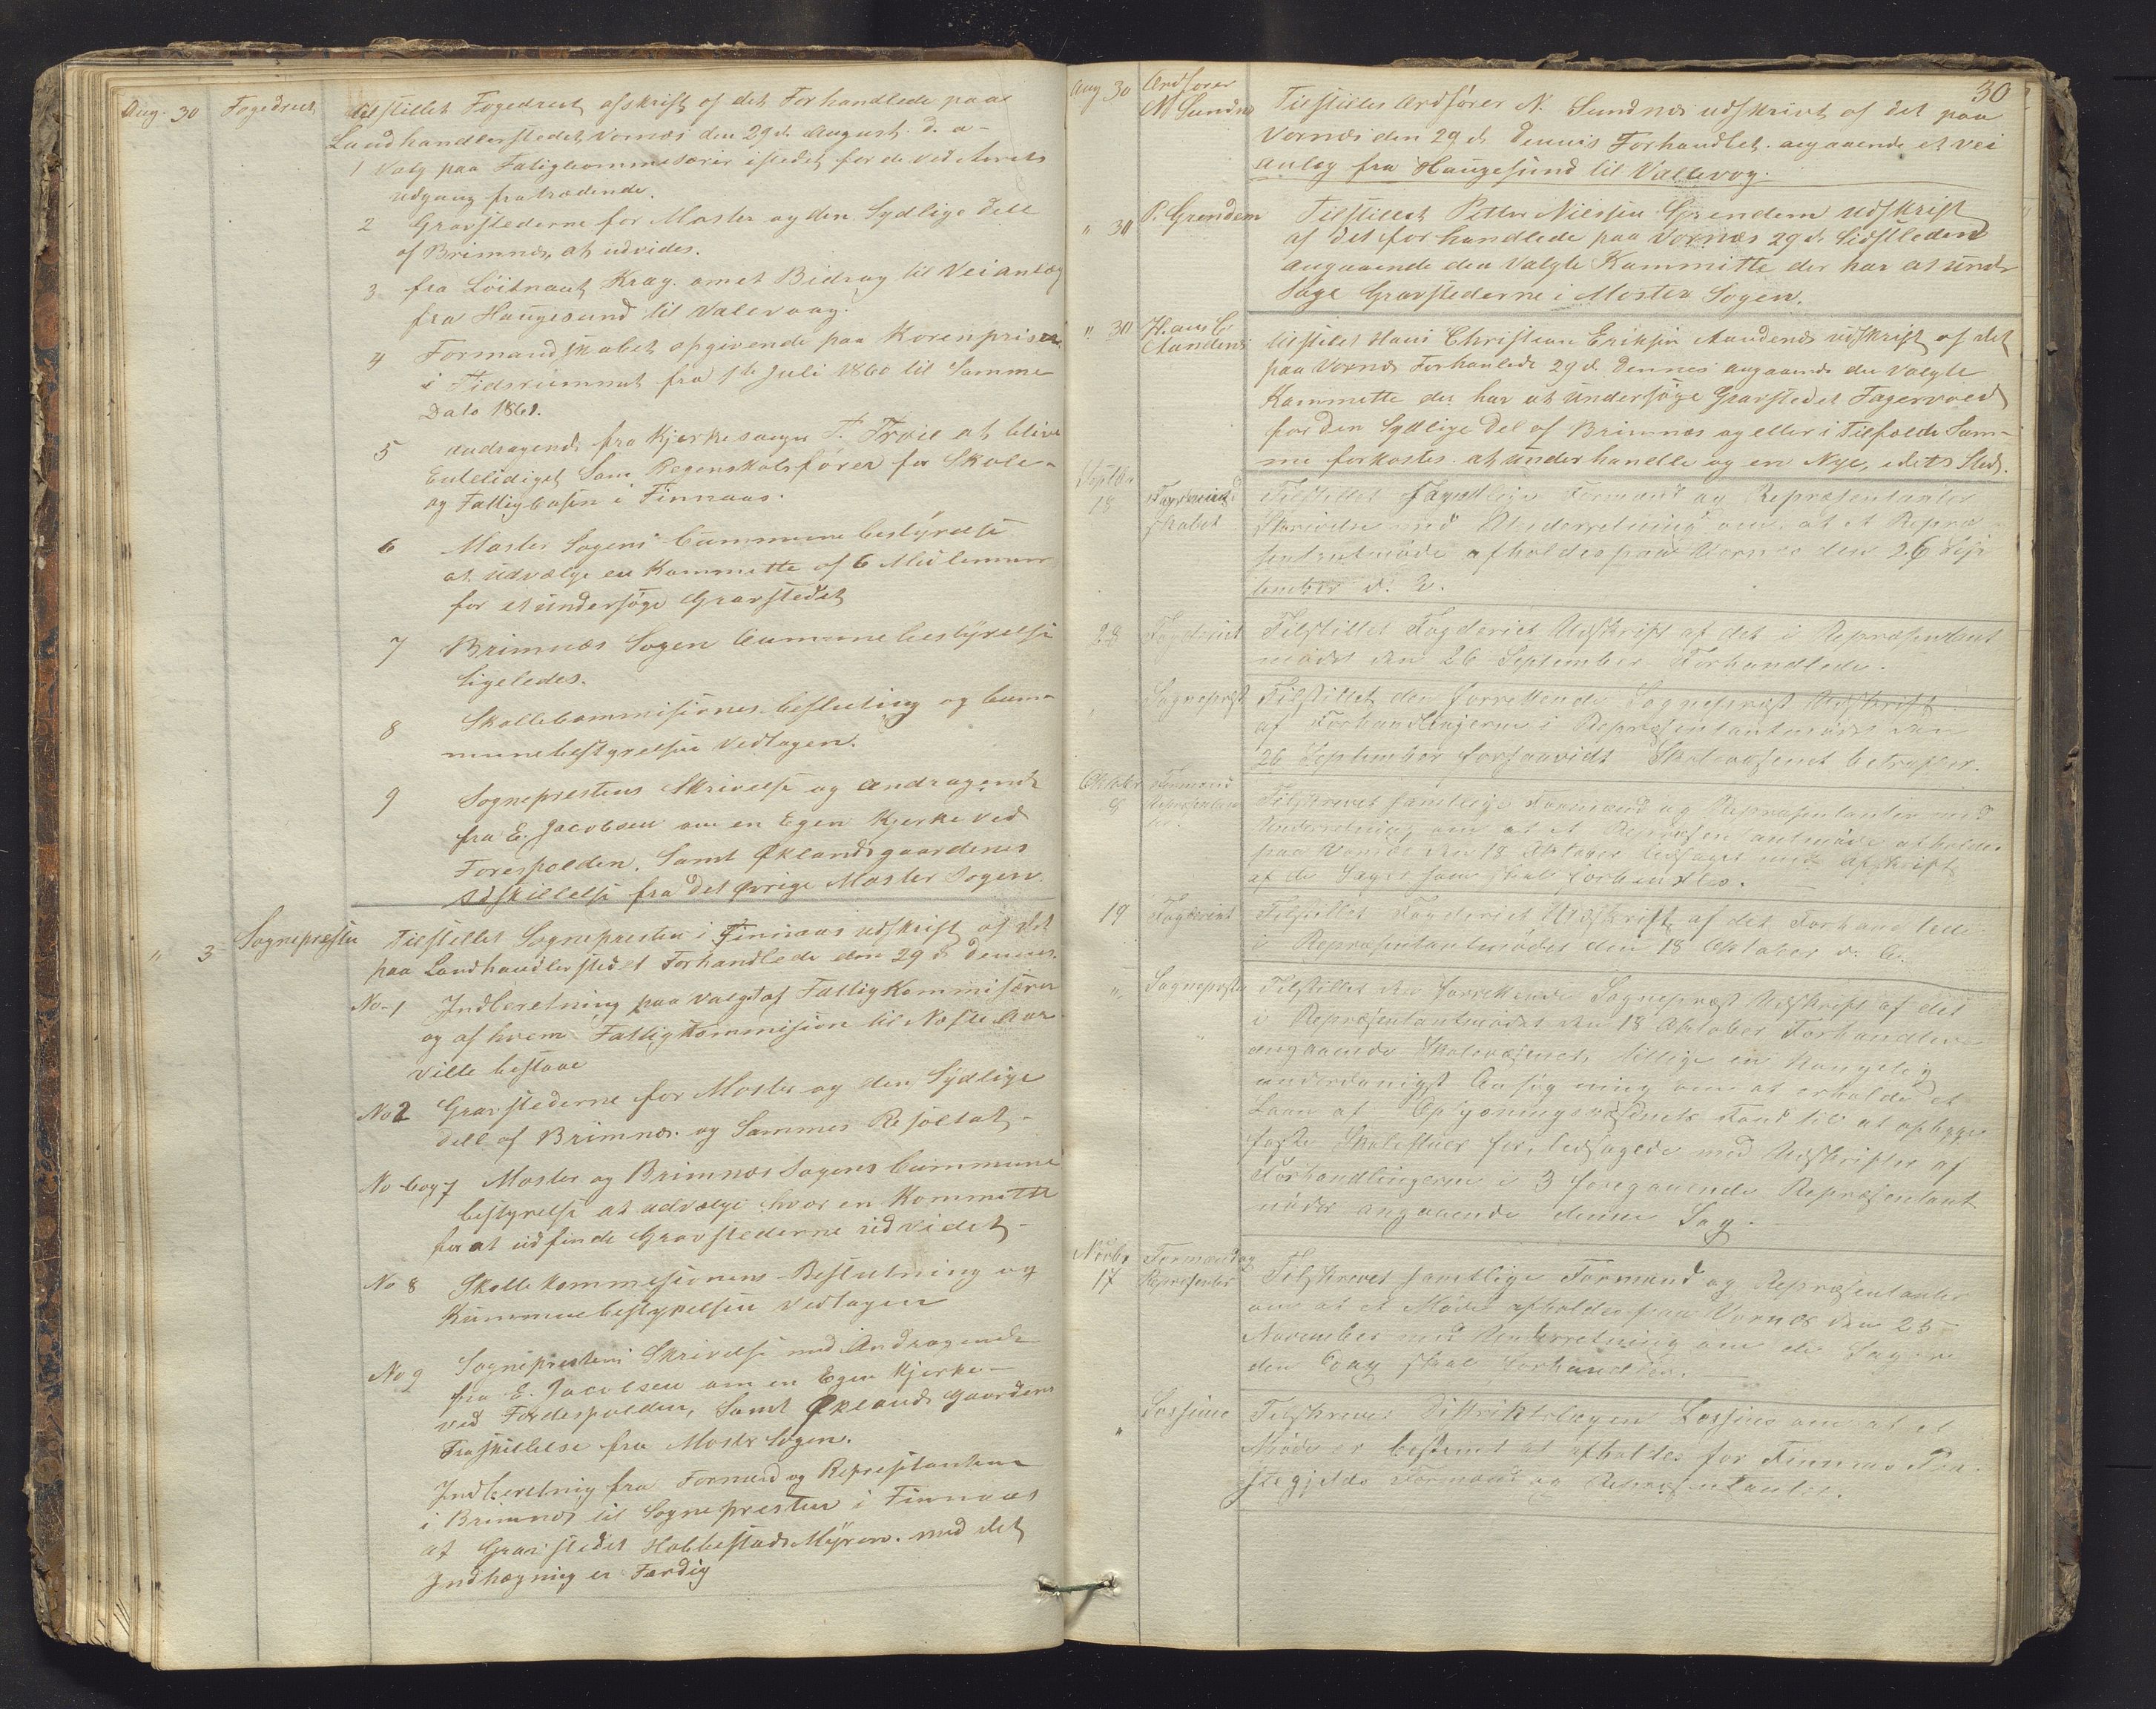 Aug. 30 Fogedriet tilstillet Fogedriet afskrift af det Forhandlede paa
Landhandlerstedet Vornæs den 29de August d. a-
1 Valg paa Fatigkommesærer istedet for de ved Aarets
udgang fratrædende.
2 Gravstederne for Moster og den Sydlige Dell
af Brimnes, at udvides.
3 fra Löitnant Krag. om et Bidrag til Veianlæg
fra Haugesund til Valevaag.
4 Formandskabet opgivende paa Korenpriser
i Tidsrummet fra 1ste Juli 1860 til Samme
Dato 1861.
5 andragende fra Kjerkesanger T. Trøie at blive
Entlidiget Som Regenskabsfører for Skole-
og Fattigcasen i Finnaas.
6 Moster Sogens Cummunebestÿrelse
at udvælge en Kammitte af 6 Medlemmer
for at undersöge Gravstedet
7 Brimnæs Sogen Cummunebestÿrelse
ligeledes.
8 Skollecommisiones beslutning og Cum-
munebestyrelsen Vedtagen.
9 Sogneprestens Skrivelse og andragende
fra E. Jacobsen om en Egen Kjerke ved
Forespolden. Samt Øklandsgaardenes
Adskillelse fra det øvrige Moster Sogen.
" 3 Sognepresten Tilstillet Sognepresten i Finnaas udskrift af det
paa Landhandlerstedet Forhandlede den 29de Dennes.
No-1 Indberetning paa valget af Fattigkommisærer
og af hvem Fattigkommision til Neste Aar
ville bestaae
No 2 Gravstederne for Moster og den Sÿdlige
Dell af Brimnæs. og Sammes Resoltat-
No 6 og 7 Moster og Brimnæs Sogens Cummune
bestyrelse at udvælge hver en Kommitte
for at udfinde Gravstederne udvidet-
No 8 Skolle kommesionens Beslutning og
Kummunebestyrelsen Vedtagen
No 9 Sogneprestens Skrivelse med Andragende
fra E. Jacobsen om en Egen Kjerke-
ved Fordespolden, Samt Øklands gaardens
Fraskillelse fra Moster Sogen.
Indberetnig fra Formend og Represetantene
i Brimnes til Sognepresten i Finnaas
at Gravstedet Habbestads Mÿren. med det
Indhægning er Færdig
30
Aug 30 Ordfører N Sundnes Tilstilles Ordfører N. Sundnes udskrivt af det paa
Vornes den 29de Dennes Forhandlet. angaaende et Vei
anlæg fra Haugesund til Vallevog.
" 30 P. Grendem Tilstillet Petter Nielsen Grendem udskrift
af det forhandlede paa Vornæs 29de Sidstleden
angaaende den Valgte Kammitte der har at under
söge Gravstederne i Moster Sogen.
" 30 Hans C Aandend tilstilet Hans Christian Eriksen Aandends udskrift af det
paa Vornes Forhanlede 29de Dennes angaaende den Valgte
Kammette der har at undersöge Gravstedet Fagervold
for den Sydlige Del af Brimnæs og eller i Tilfælde Sam-
me forkastes at underhandle og en Nye, edets Sted.
Septbr 18 Formandskabet Tilstillet samtlige Formænd og Repræsentanter
Skrivelse med Underretning om at et Repræ
sentantmöde afholdes paa Vornes den 26 Sep
tember d. A.
28 Fogderiet Tilstillet Fogderiet Udskrift af det i Repræsentant
mödet den 26 September Forhandlede.
" Sogneprest Tilstillet den forrettende Sogneprest Udskrift
af Forhandlingerne i Repræsentantmödet den
26 September forsaavidt Skolevæsenet betreffer.
Oktober 8 Formænd Repræsentan Tilskrevet samtlige Formænd og Repræsentanter med
Underretning om at et Repræsentantmöde afholdes
paa Vornes den 18 Oktober ledsaget med Afskrift
af de Sager som skal forhandles.
19 Fogderiet Tilstillet Fogderiet Udskrift af det Forhandlede
i Repræsentantmödet den 18 Oktober d. A.
" Sognepresten Tilstillet den forrettende Sogneprest Udskrift af det
i Repræsentantmödet den 18 Oktober Forhandlede
angaaende Skolevæsenet, tillige en Kongelig
underdanigst Ansögning om at erholde et
Laan af Oplysningsvæsenets Fond til at opbygge
faste Skolestuer for, ledsagede med Udskrifter af
Forhandlingerne i 3 foregaaende Repræsentant
möder angaaende denne Sag.
Novbr 17 Formænd og Representer Tilskrevet samtlige Formænd og Repræsentanter
om at et Möde afholdes paa Vornes den 25
November med Underretning om de Sager
den Dag skal forhandles.
" Lossius Tilskrevet Distriktslægen Lossius om at et
Möde er bestemt at afholdes for Finnaas Præ
stegjelds Formænd og Repræsentanter.